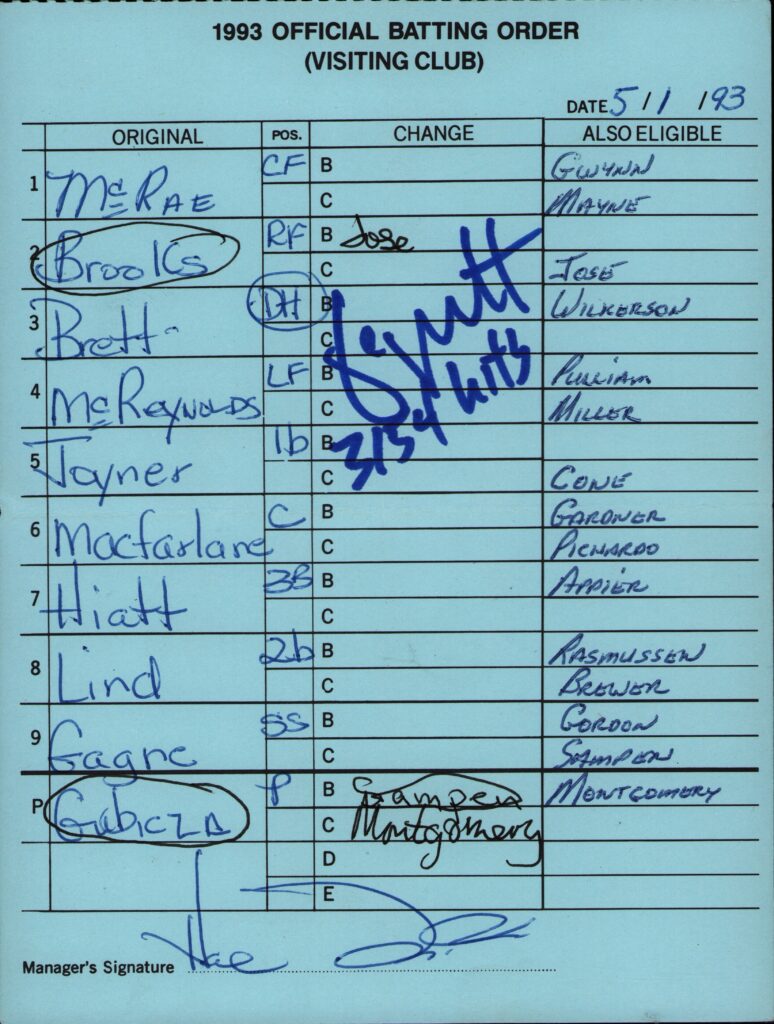 1993 OFFICIAL BATTING ORDER
(VISITING CLUB)
DATE 5/1/93
ORIGINAL POS. CHANGE ALSO ELIGIBLE
1 McRAE CF B GWYNN
C MAYNE
2 Brooks RF B Jose
C JOSE
3 Brett DH B WILKERSON
C
4 McReynolds LF B PULLIAM
C MILLER
5 Joyner 1b B
C CONE
6 Macfarlane C B GARDNER
C PICHARDO
7 Hiatt 3B B APPIER
C
8 Lind 2b B RASMUSSEN
C BREWER
9 Gagne SS B GORDON
C SAMPEN
P Gubicza P B Sampen MONTGOMERY
C Montgomery
D
E
3154 hits
Manager's Signature Hal